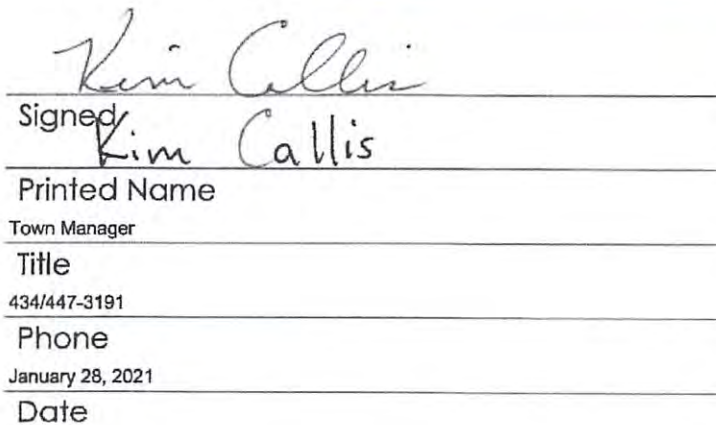 Kim Callis
Signed
Kim Callis
Printed Name
Town Manager
Title
434/447-3191
Phone
January 28, 2021
Date